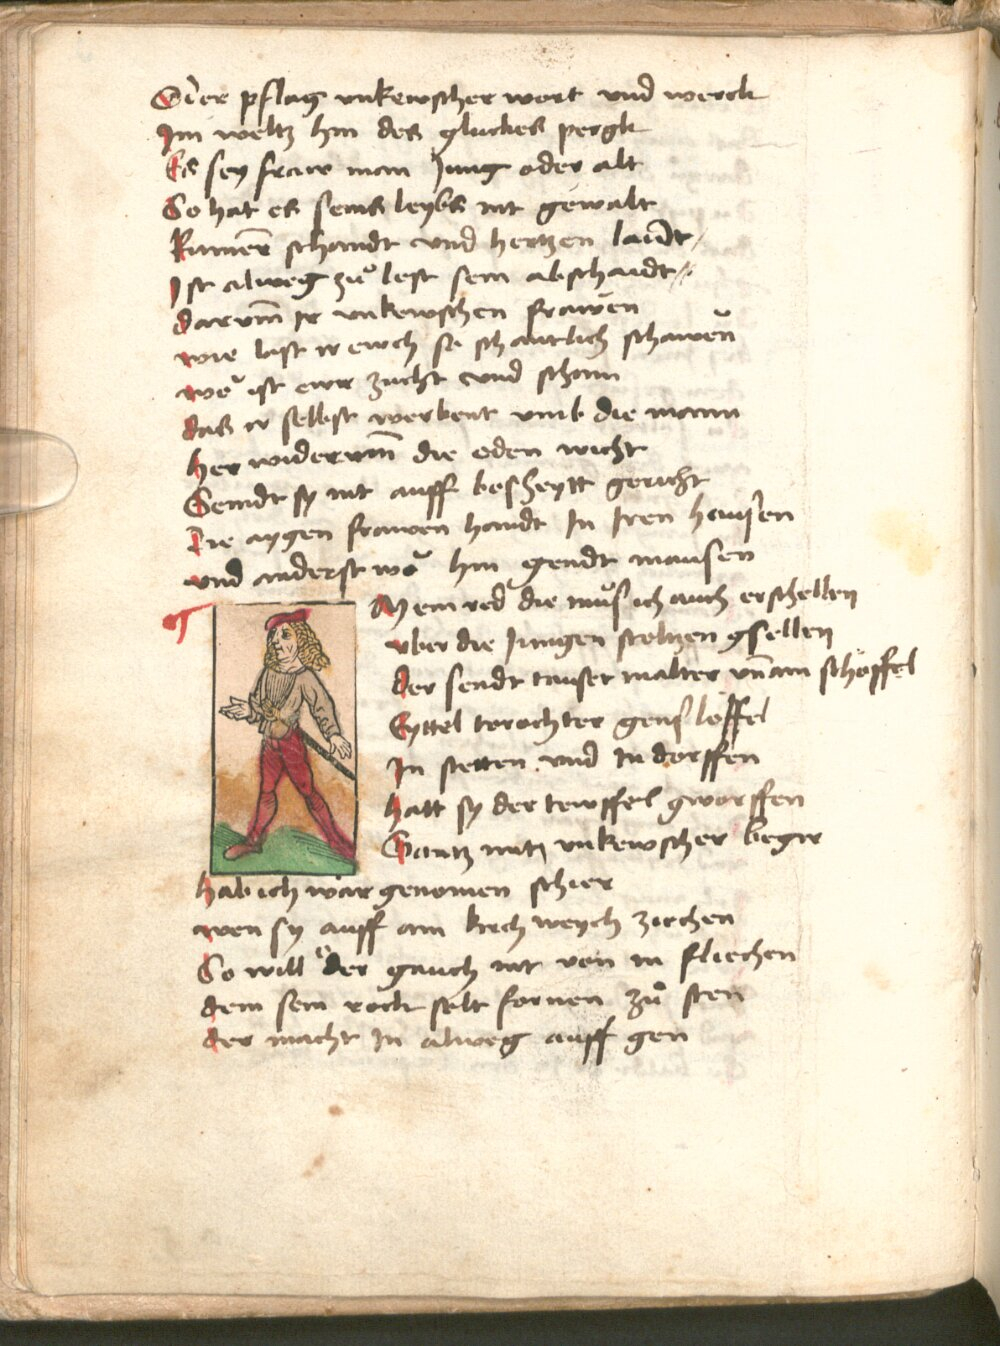 Oder pflag vnkewscher wort vnd werck
Im weltz hin des gluckes pergk
Es sey fraw man Jung oder alt
So hat es seins leybs nit gewalt
schandt vnd hertzen laidt
Ist alweg zu lest sein abschaidt
darum ir vnkewschen frawen
wie last ir ewch so schantlich schawen
wo ist ewr zucht vnd scham
das ir selbst werbent vmb die mann
her widerumm die oden wicht
Sendt sy nit auff bescheytt gericht
Die aygen frawen handt In Iren hausen
vnd anderst wo hin gendt mausen
Mein red die mus ich auch erschellen
vber die Jungen stoltzen gsellen
der sendt tauset malter vn am schöffel
Eyttel torochter gens löffel
In stetten vnd In dorffen
hatt sy der tewffel gworffen
Gantz mit vnkewscher begir
hab ich war genomen schier
wen sy auff ain kirchweych ziechen
So will der gauch nit von in fliechen
dem sein rock selt fornen zu sten
der macht In alweg auff gen